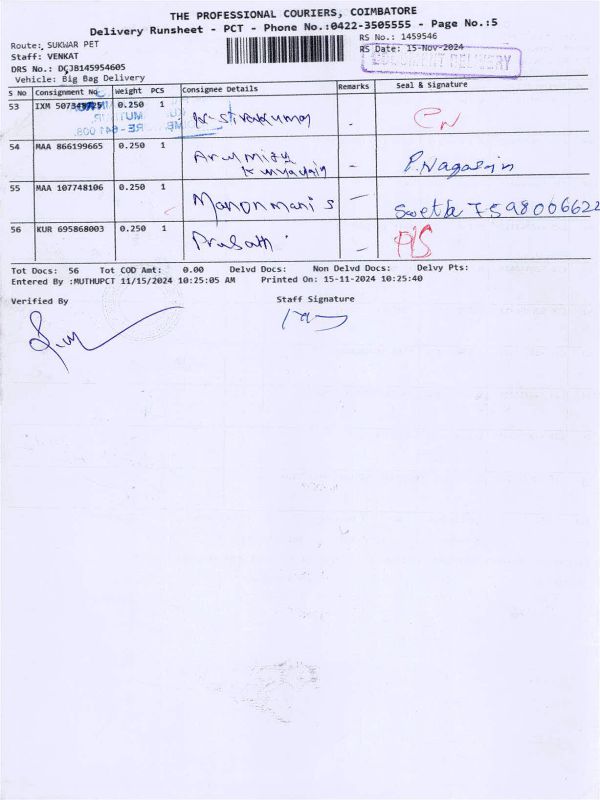 THE PROFESSIONAL COURIERS, COIMBATORE
Delivery Runsheet - PCT - Phone No.:0422-3505555 - Page No.:5
Route: SUKWAR PET
RS No.: 1459546
Staff: VENKAT
RS Date: 15-Nov-2024
DOCUMENT DELIVERY
DRS No.: DCJB145954605
Vehicle: Big Bag Delivery
S No Consignment No Weight PCS Consignee Details Remarks Seal & Signature
53 IXM 0.250 1 K-Sivakumar - CN
54 MAA 866199665 0.250 1 - P.Nagarajn
55 MAA 107748106 0.250 1 Manonmani S - Swetha 7598006622
56 KUR 695868003 0.250 1 Prasath - P/S
Tot Docs: 56 Tot COD Amt: 0.00 Delvd Docs: Non Delvd Docs: Delvy Pts:
Entered By :MUTHUPCT 11/15/2024 10:25:05 AM Printed On: 15-11-2024 10:25:40
Verified By Staff Signature